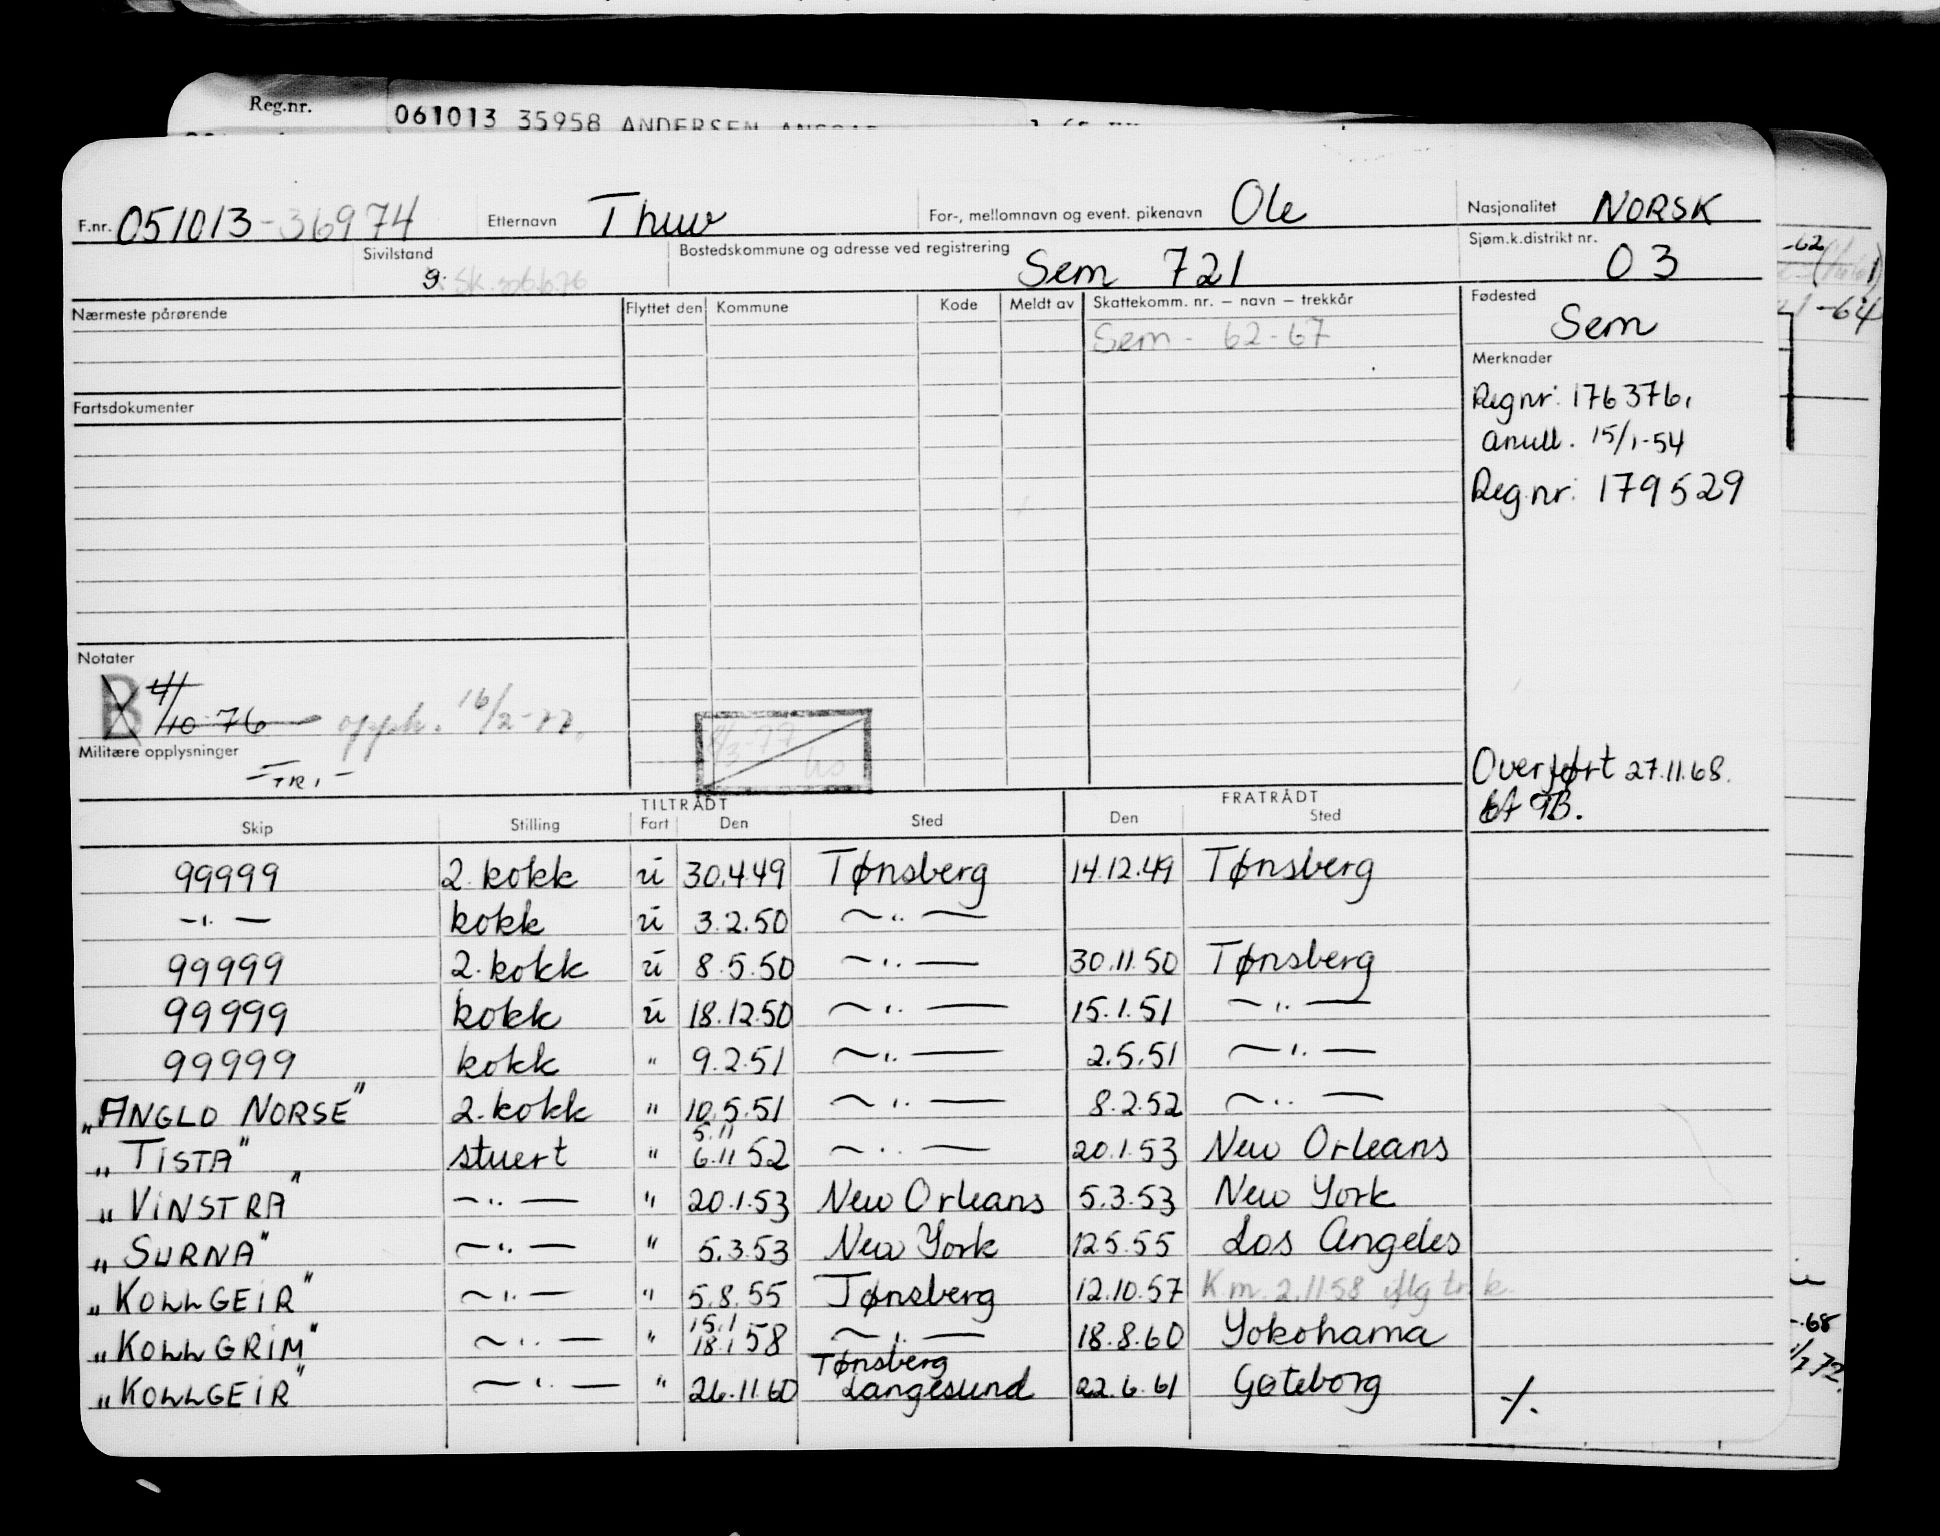 Reg.nr. 061013 35958 ANDERSEN
F.nr. 051013-36974 Etternavn Thuv For-, mellomnavn og event. pikenavn Ole Nasjonalitet NORSK
Sivilstand g. Bostedskommune og adresse ved registrering Sem 721 Sjøm.k.distrikt nr. 03
Nærmeste pårørende Flyttet den Kommune Kode Meldt av Skattekomm. nr. – navn – trekkår Fødested
Sem - 62-67 Sem
Merknader
Fartsdokumenter Reg nr: 176376,
anull. 15/1-54
Reg.nr: 179529
Notater
B 4/10-76 opph. 16/2-77.
Militære opplysninger
-TR,-
Overført 27.11.68.
TILTRÅDT FRATRÅDT
Skip Stilling Fart Den Sted Den Sted
99999 2. kokk ü 30.4.49 Tønsberg 14.12.49 Tønsberg
-"- kokk ü 3.2.50 -"-
99999 2. kokk ü 8.5.50 -"- 30.11.50 Tønsberg
99999 kokk ü 18.12.50 -"- 15.1.51 -"-
99999 kokk " 9.2.51 -"- 2.5.51 -"-
"ANGLO NORSE" 2. kokk " 10.5.51 -"- 8.2.52 -"-
5.11
"TISTA" stuert " 6.11 52 -"- 20.1.53 New Orleans
"VINSTRA" -"- " 20.1.53 New Orleans 5.3.53 New York
"SURNA" -"- " 5.3.53 New York 12.5.55 Los Angeles
"KOLLGEIR" -"- " 5.8.55 Tønsberg 12.10.57 K.m. 2.11 58 iflg
15.1
"KOLLGRIM" -"- " 18.1 58 -"- 18.8.60 Yokohama
Tønsberg
"KOLLGEIR" -"- " 26.11.60 Langesund 22.6.61 Gøteborg ./.
-62
-64
-68